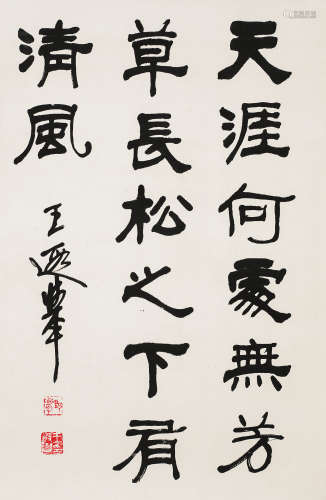 天涯何處無芳
草長松之下有
清風
王遐舉